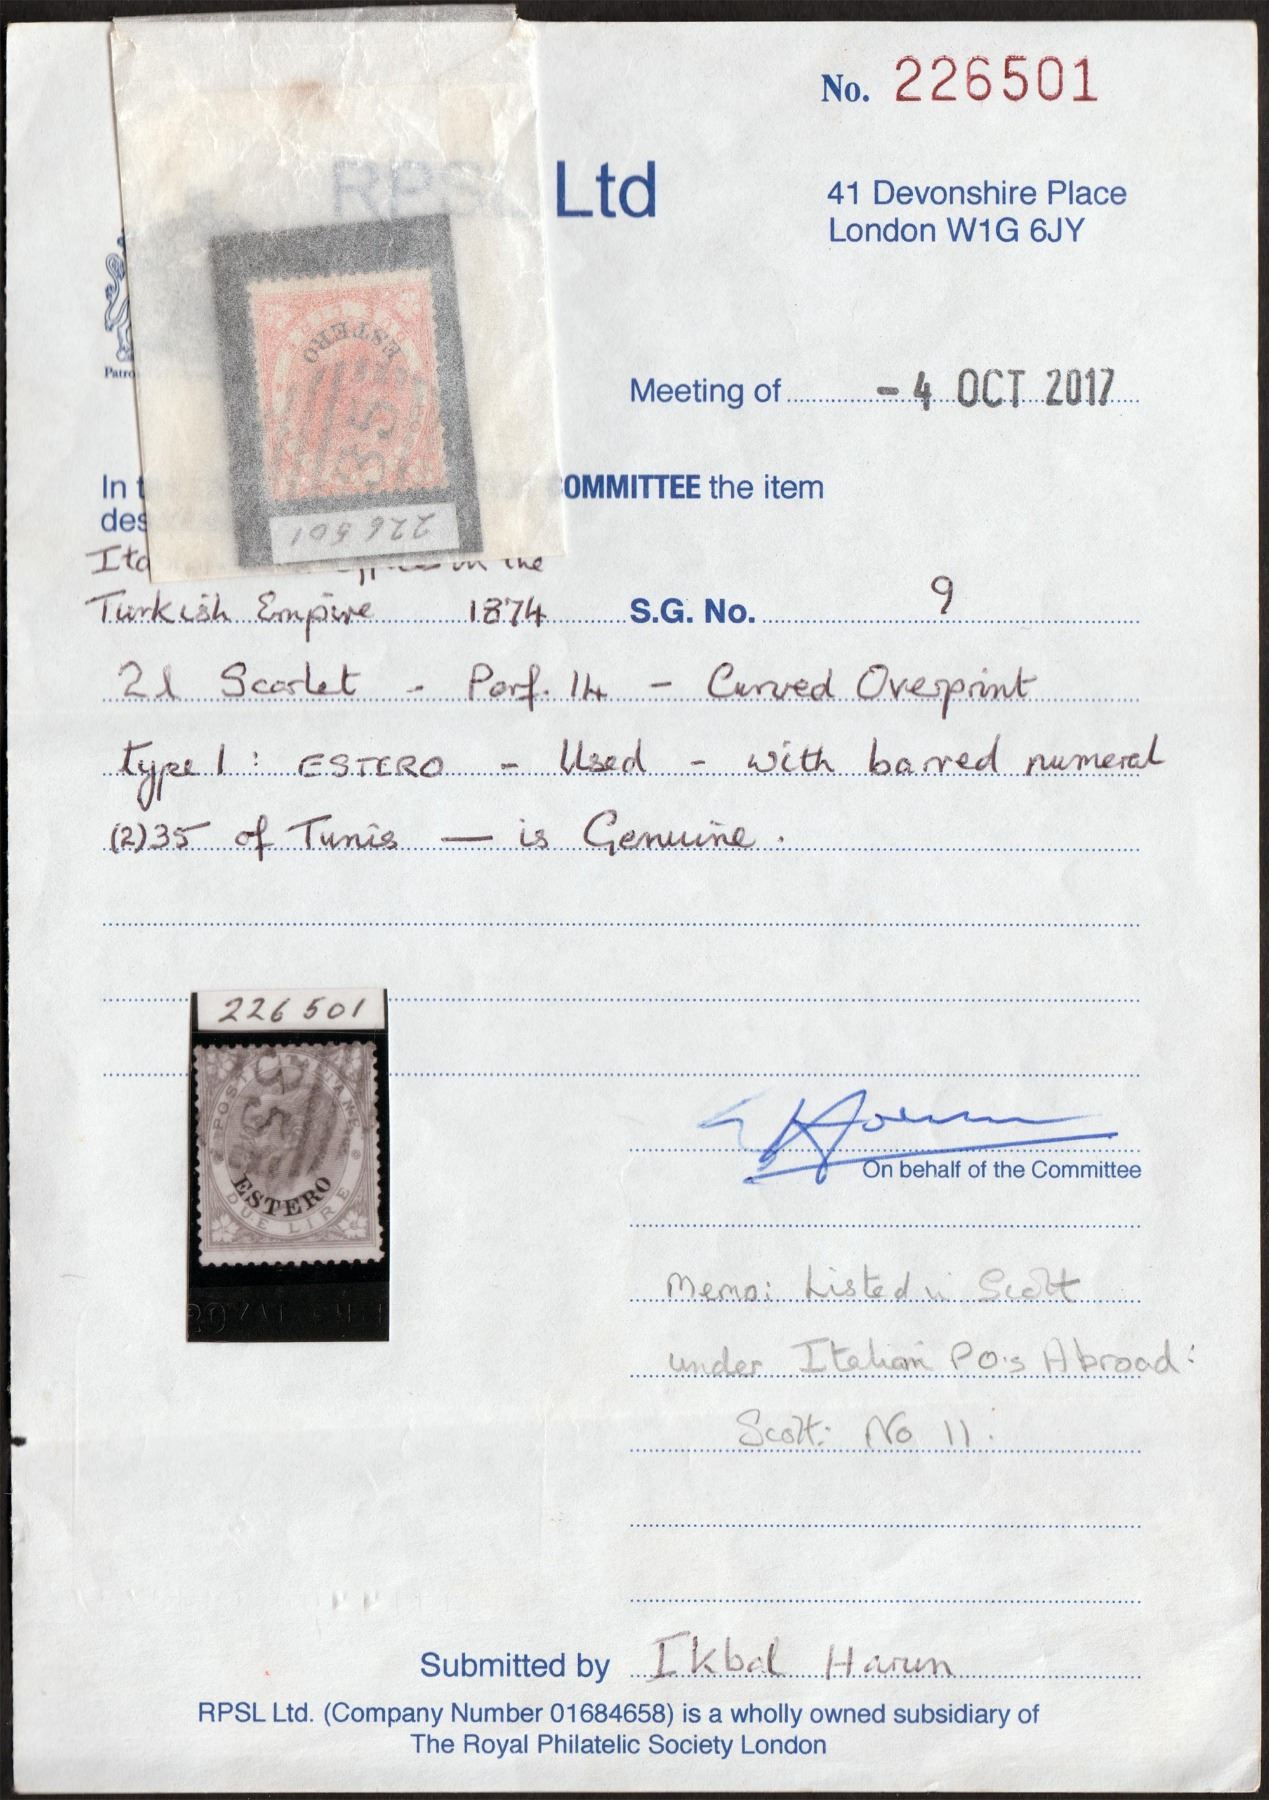 No. 226501
RPSL Ltd
41 Devonshire Place
London W1G 6JY
ESTERO
Patro
Meeting of - 4 OCT 2017
In t COMMITTEE the item
des
226 501
Ita in the
Turkish Empire 1874 S.G. No. 9
2l Scarlet - Perf. 14 - Curved Overprint
type 1: ESTERO - Used - with barred numeral
(2)35 of Tunis — is Genuine.
226 501
POSTE ITALIANE
235
ESTERO
DUE LIRE
On behalf of the Committee
Memo: Listed in Scott
under Italian PO's Abroad:
Scott: No 11.
Submitted by Ikbal Harun
RPSL Ltd. (Company Number 01684658) is a wholly owned subsidiary of
The Royal Philatelic Society London